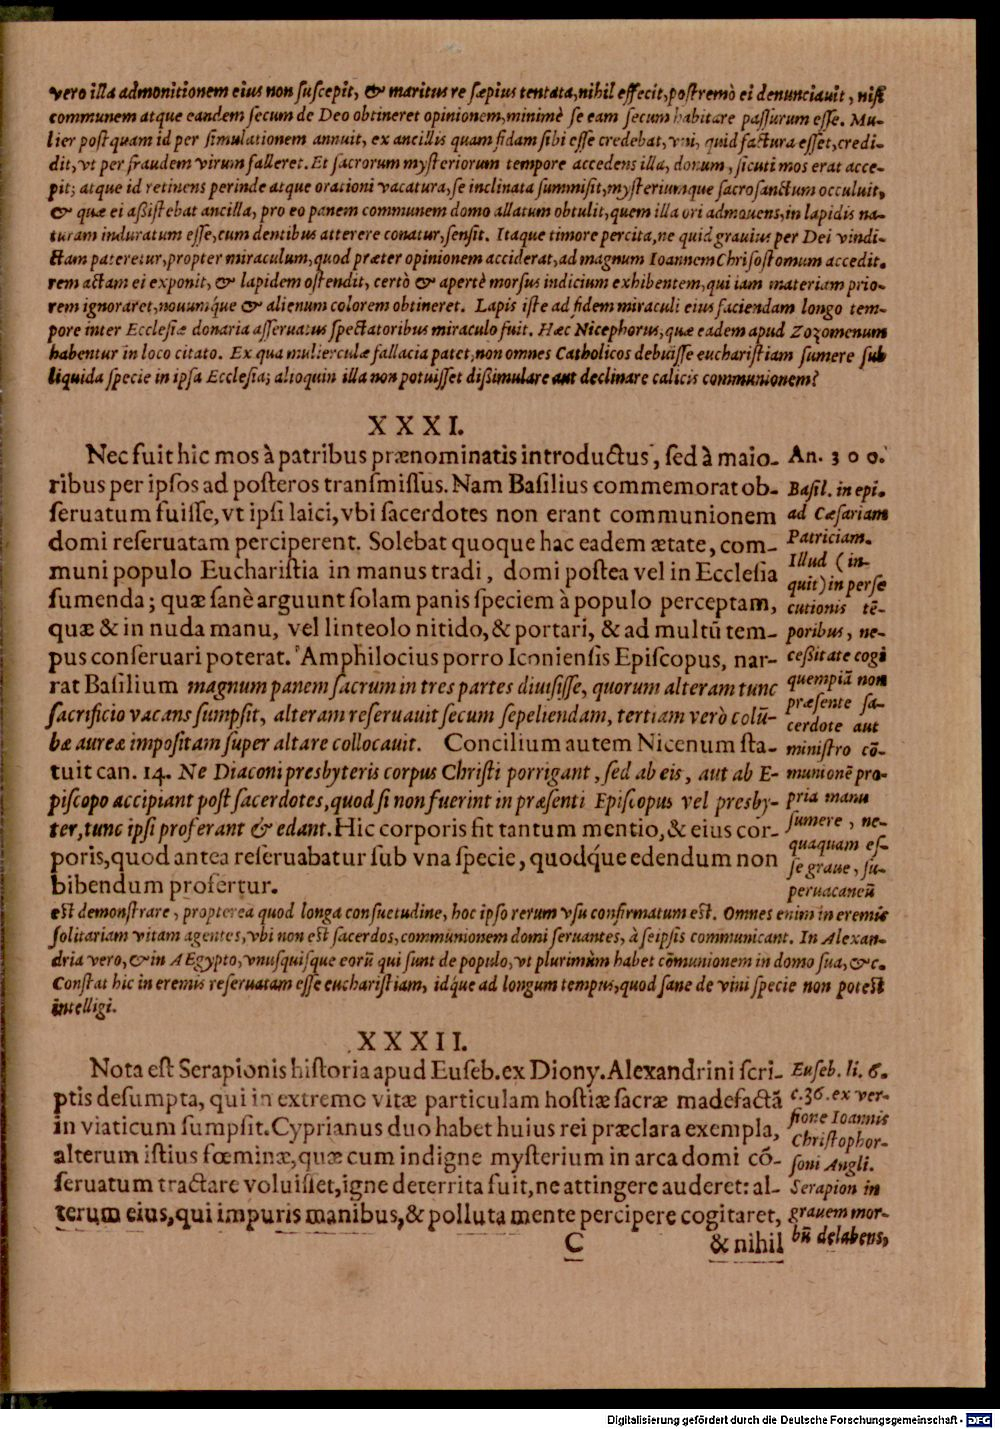 vero illa admonitionem eius non ſuſcepit, & maritus re ſæpius tentata, nihil effecit, poſtremò ei denunciauit, niſi
communem atque eandem ſecum de Deo obtineret opinionem, minimè ſe eam ſecum habitare paſſurum eſſe. Mu-
lier poſtquam id per ſimulationem annuit, ex ancillis quam fidam ſibi eſſe credebat, vni, quid factura eſſet, credi-
dit, vt per fraudem virum falleret. Et ſacrorum myſteriorum tempore accedens illa, donum, ſicuti mos erat acce-
pit; atque id retinens perinde atque orationi vacatura, ſe inclinata ſummiſit, myſteriumque ſacroſanctum occuluit,
& quæ ei aßiſtebat ancilla, pro eo panem communem domo allatum obtulit, quem illa ori admouens, in lapidis na-
turam induratum eſſe, cum dentibus atterere conatur, ſenſit. Itaque timore percita, ne quid grauius per Dei vindi-
ctam pateretur, propter miraculum, quod præter opinionem acciderat, ad magnum Ioannem Chriſoſtomum accedit.
rem actam ei exponit, & lapidem oſtendit, certò & apertè morſus indicium exhibentem, qui iam materiam prio-
rem ignoraret, nouumq́ue & alienum colorem obtineret. Lapis iſte ad fidem miraculi eius faciendam longo tem-
pore inter Eccleſiæ donaria aſſeruatus ſpectatoribus miraculo fuit. Hæc Nicephorus, quæ eadem apud Zozomenum
habentur in loco citato. Ex qua mulierculæ fallacia patet, non omnes Catholicos debuiſſe euchariſtiam ſumere ſub
liquida ſpecie in ipſa Eccleſia; alioquin illa non potuiſſet dißimulare aut declinare calicis communionem?
XXXI.
Nec fuit hic mos à patribus prænominatis introductus, ſed à maio-
ribus per ipſos ad poſteros tranſmiſſus. Nam Baſilius commemorat ob-
ſeruatum fuiſſe, vt ipſi laici, vbi ſacerdotes non erant communionem
domi reſeruatam perciperent. Solebat quoque hac eadem ætate, com-
muni populo Euchariſtia in manus tradi, domi poſtea vel in Eccleſia
ſumenda; quæ ſanè arguunt ſolam panis ſpeciem à populo perceptam,
quæ & in nuda manu, vel linteolo nitido, & portari, & ad multū tem-
pus conſeruari poterat. Amphilocius porro Iconienſis Epiſcopus, nar-
rat Baſilium magnum panem ſacrum in tres partes diuiſiſſe, quorum alteram tunc
ſacrificio vacans ſumpſit, alteram reſeruauit ſecum ſepeliendam, tertiam verò colū-
bæ aureæ impoſitam ſuper altare collocauit. Concilium autem Nicenum ſta-
tuit can. 14. Ne Diaconi presbyteris corpus Chriſti porrigant, ſed ab eis, aut ab E-
piſcopo accipiant poſt ſacerdotes, quod ſi non fuerint in præſenti Epiſcopus vel presby-
ter, tunc ipſi proferant & edant. Hic corporis fit tantum mentio, & eius cor-
poris, quod antea reſeruabatur ſub vna ſpecie, quodq́ue edendum non
bibendum profertur.
An. 300.
Baſil. in epi.
ad Cæſariam
Patriciam.
Illud (in-
quit) in perſe
cutionis tē-
poribus, ne-
ceßitate cogi
quempiā non
præſente ſa-
cerdote aut
miniſtro cō-
munionē pro-
pria manu
ſumere, ne-
quaquam eſ-
ſe graue, ſu-
peruacaneū
eſt demonſtrare, propterea quod longa conſuetudine, hoc ipſo rerum vſu confirmatum eſt. Omnes enim in eremis
ſolitariam vitam agentes, vbi non eſt ſacerdos, communionem domi ſeruantes, à ſeipſis communicant. In Alexan-
dria vero, & in AEgypto, vnuſquiſque eorū qui ſunt de populo, vt plurimùm habet cōmunionem in domo ſua, &c.
Conſtat hic in eremis reſeruatam eſſe euchariſtiam, idq́ue ad longum tempus, quod ſane de vini ſpecie non poteſt
intelligi.
XXXII.
Nota eſt Serapionis hiſtoria apud Euſeb. ex Diony. Alexandrini ſcri-
ptis deſumpta, qui in extremo vitæ particulam hoſtiæ ſacræ madefactā
in viaticum ſumpſit. Cyprianus duo habet huius rei præclara exempla,
alterum iſtius fœminæ, quæ cum indigne myſterium in arca domi cō-
ſeruatum tractare voluiſſet, igne deterrita fuit, ne attingere auderet: al-
terum eius, qui impuris manibus, & polluta mente percipere cogitaret,
Euſeb. li. 6.
c. 36. ex ver-
ſione Ioannis
Chriſtophor-
ſoni Angli.
Serapion in
grauem mor-
bū delabens,
C & nihil
Digitalisierung gefördert durch die Deutsche Forschungsgemeinschaft - DFG